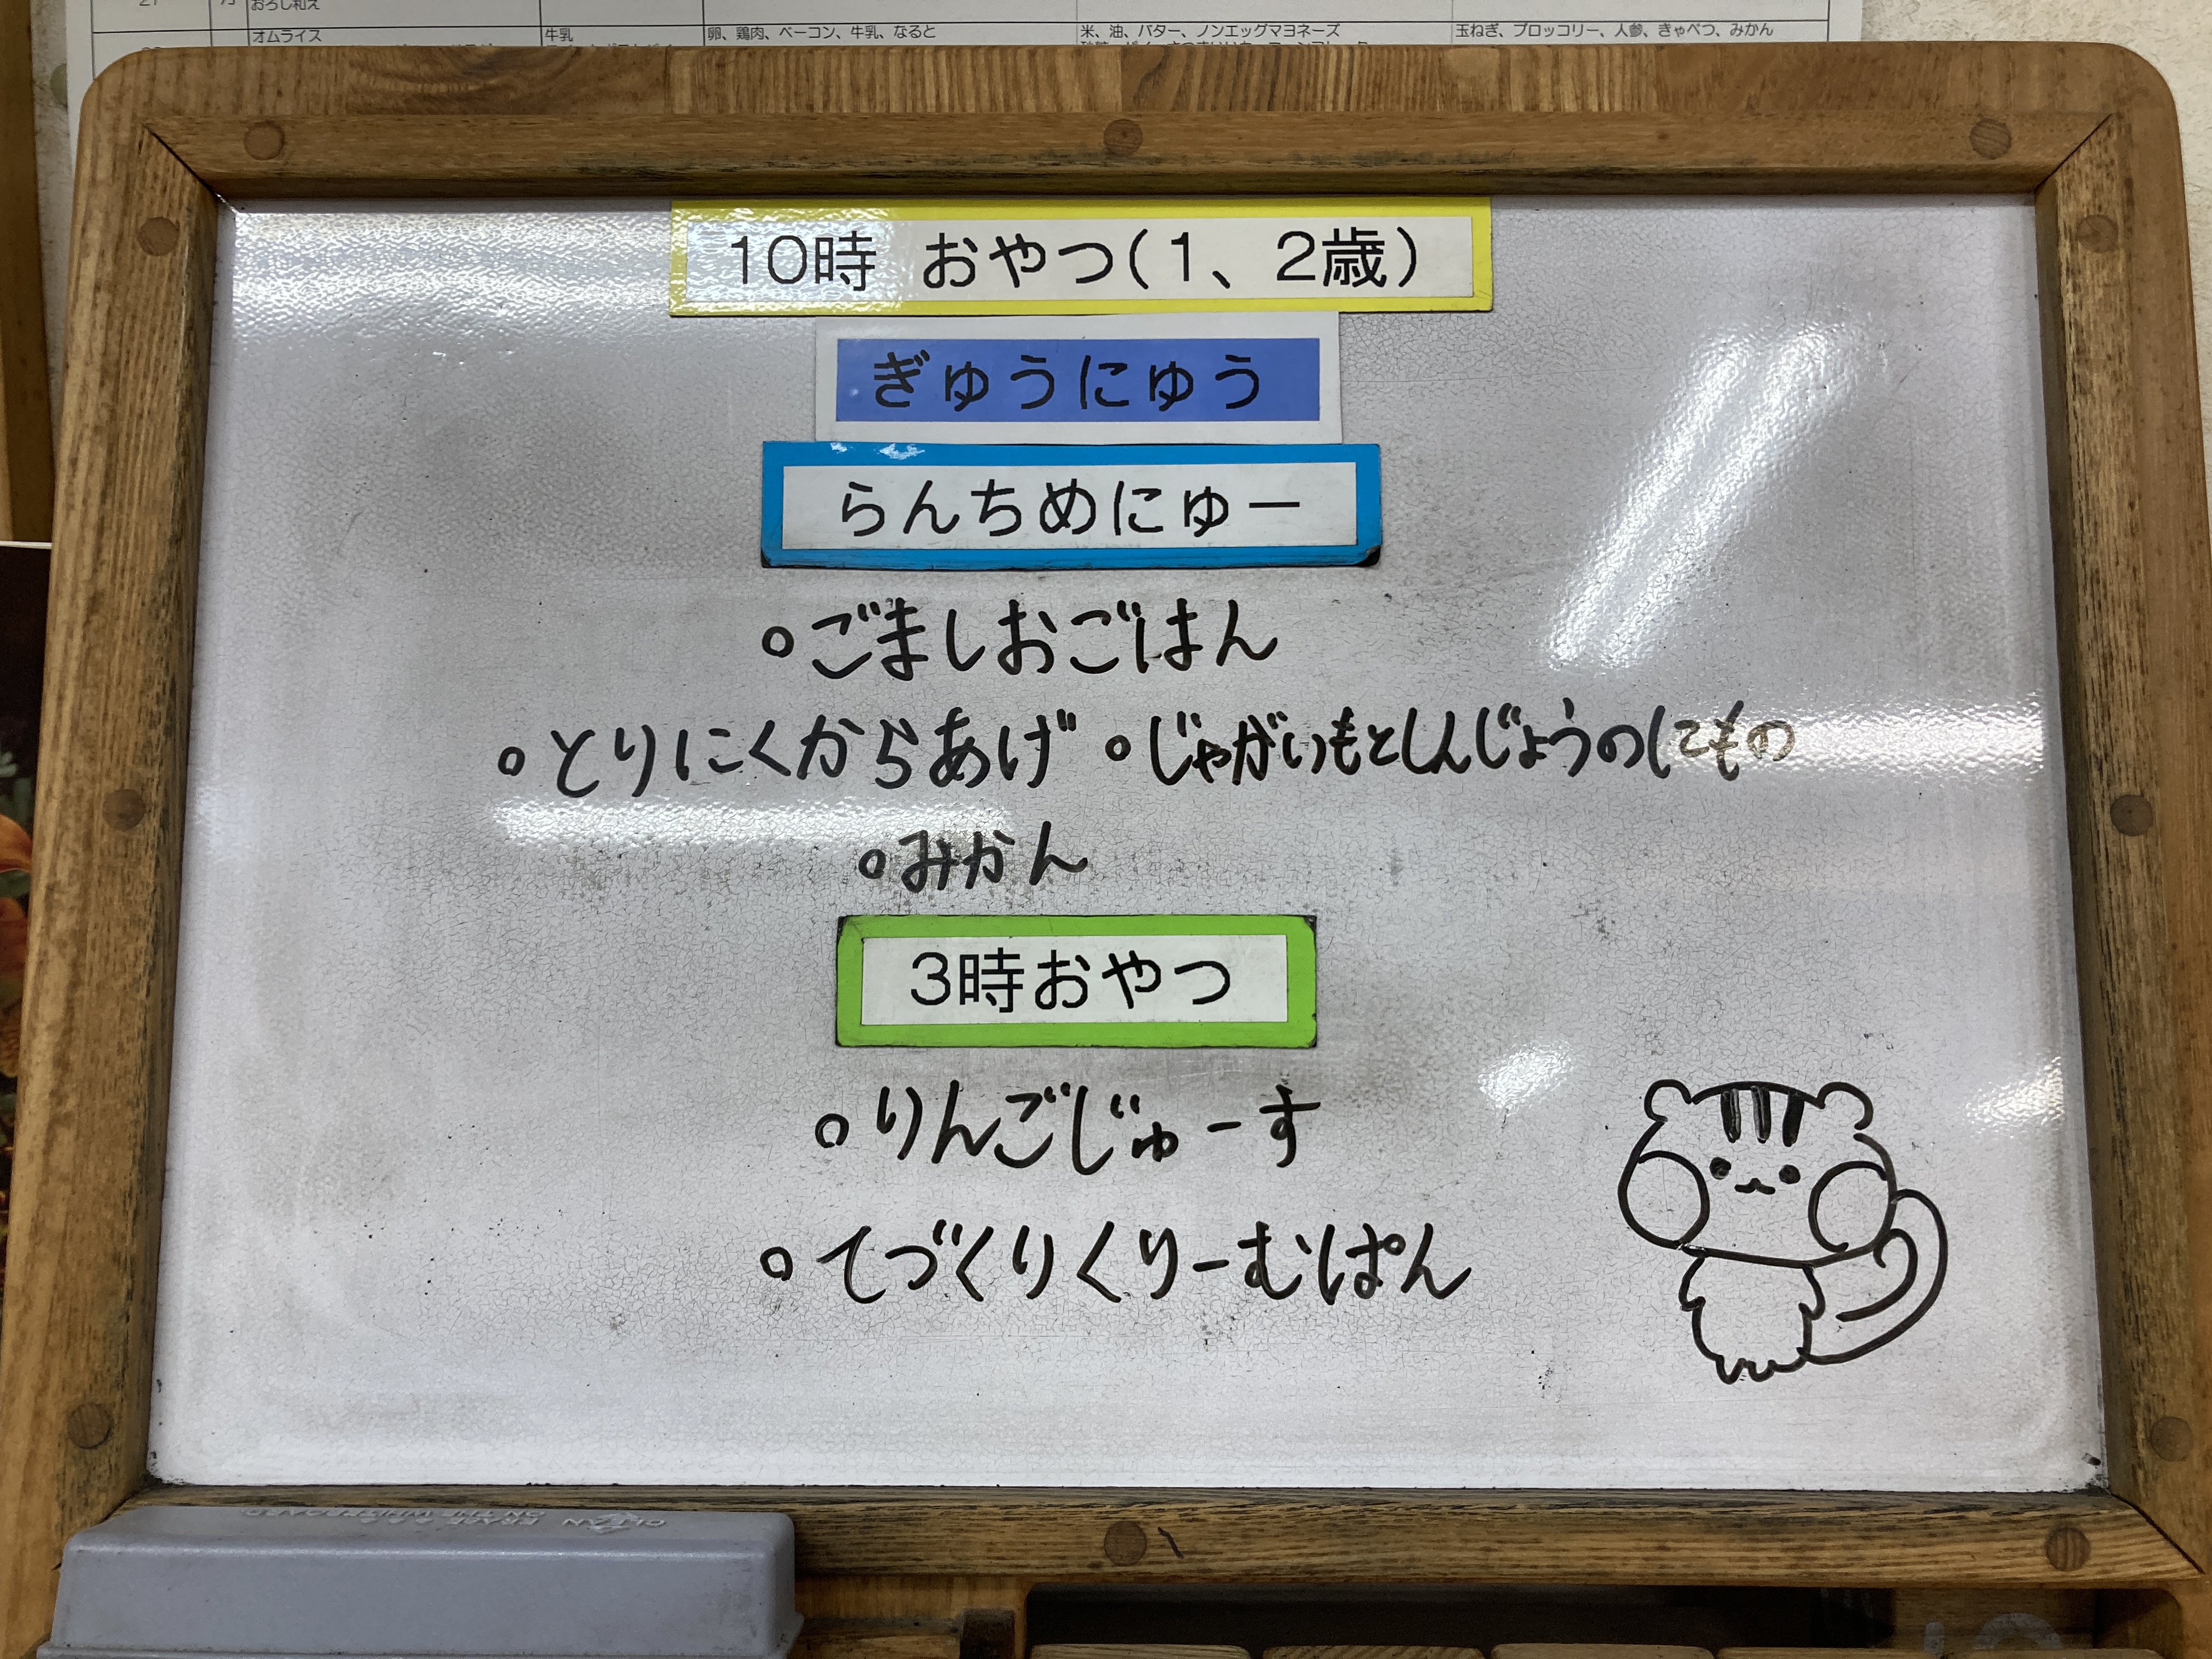 おろし和え
オムライス 牛乳 卵、鶏肉、ベーコン、牛乳、なると 米、油、バター、ノンエッグマヨネーズ 玉ねぎ、ブロッコリー、人参、きゃべつ、みかん
10時 おやつ(1、2歳)
ぎゅうにゅう
らんちめにゅー
○ごましおごはん
○とりにくからあげ ○じゃがいもとしんじょうのにもの
○みかん
3時おやつ
○りんごじゅーす
○てづくりくりーむぱん
CLEAN ERASER
ON THE WHITEBOARD